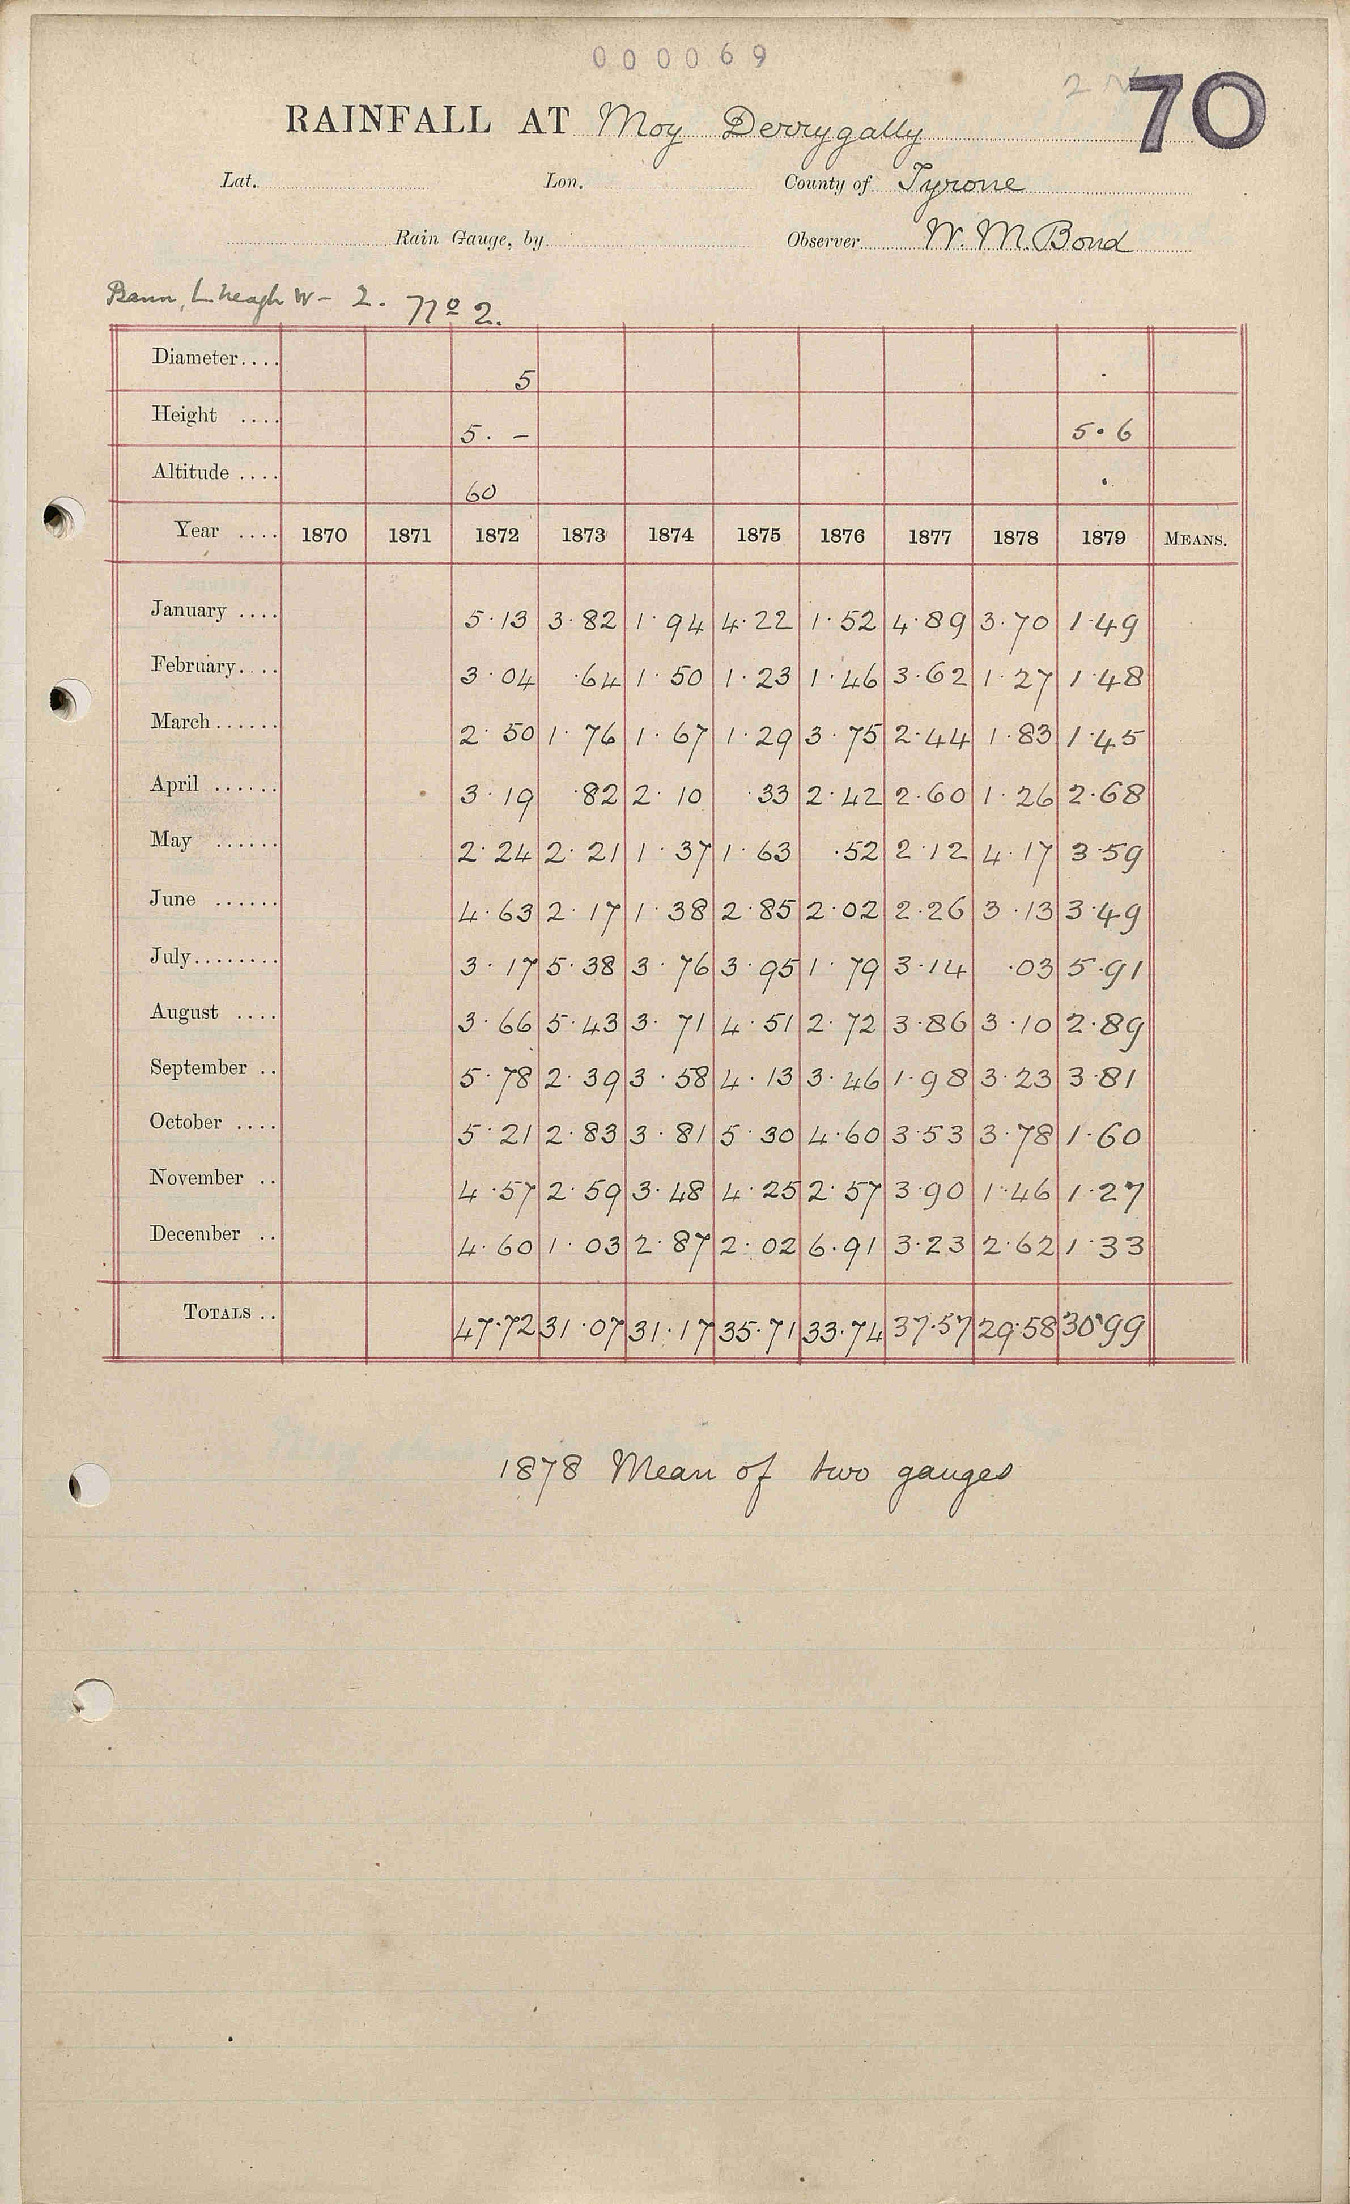 000069
70
RAINFALL AT Moy Derrygally
Lat. Lon. County of Tyrone
Rain Gauge, by Observer W. M. Bond
Bann, L. Neagh W - 2. No 2.
Diameter.... 5
Height .... 5. - 5.6
Altitude .... 60
Year .... 1870 1871 1872 1873 1874 1875 1876 1877 1878 1879 MEANS.
January .... 5.13 3.82 1.94 4.22 1.52 4.89 3.70 1.49
February.... 3.04 .64 1.50 1.23 1.46 3.62 1.27 1.48
March...... 2.50 1.76 1.67 1.29 3.75 2.44 1.83 1.45
April ...... 3.19 .82 2.10 .33 2.42 2.60 1.26 2.68
May ...... 2.24 2.21 1.37 1.63 .52 2.12 4.17 3.59
June ...... 4.63 2.17 1.38 2.85 2.02 2.26 3.13 3.49
July........ 3.17 5.38 3.76 3.95 1.79 3.14 .03 5.91
August .... 3.66 5.43 3.71 4.51 2.72 3.86 3.10 2.89
September .. 5.78 2.39 3.58 4.13 3.46 1.98 3.23 3.81
October .... 5.21 2.83 3.81 5.30 4.60 3.53 3.78 1.60
November .. 4.57 2.59 3.48 4.25 2.57 3.90 1.46 1.27
December .. 4.60 1.03 2.87 2.02 6.91 3.23 2.62 1.33
TOTALS .. 47.72 31.07 31.17 35.71 33.74 37.57 29.58 30.99
1878 Mean of two gauges